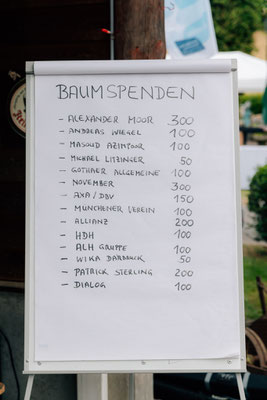 BAUMSPENDEN
- ALEXANDER MOOR 300
- ANDREAS WIEGEL 100
- MASOUD AZIMTOOR 100
- MICHAEL LITZINGER 50
- GOTHAER ALLGEMEINE 100
- NOVEMBER 300
- AXA/DBV 150
- MÜNCHENER VEREIN 100
- ALLIANZ 200
- HDH 100
- ALH GRUPPE 100
- WIKA 50
- PATRICK STERLING 200
- DIALOG 100